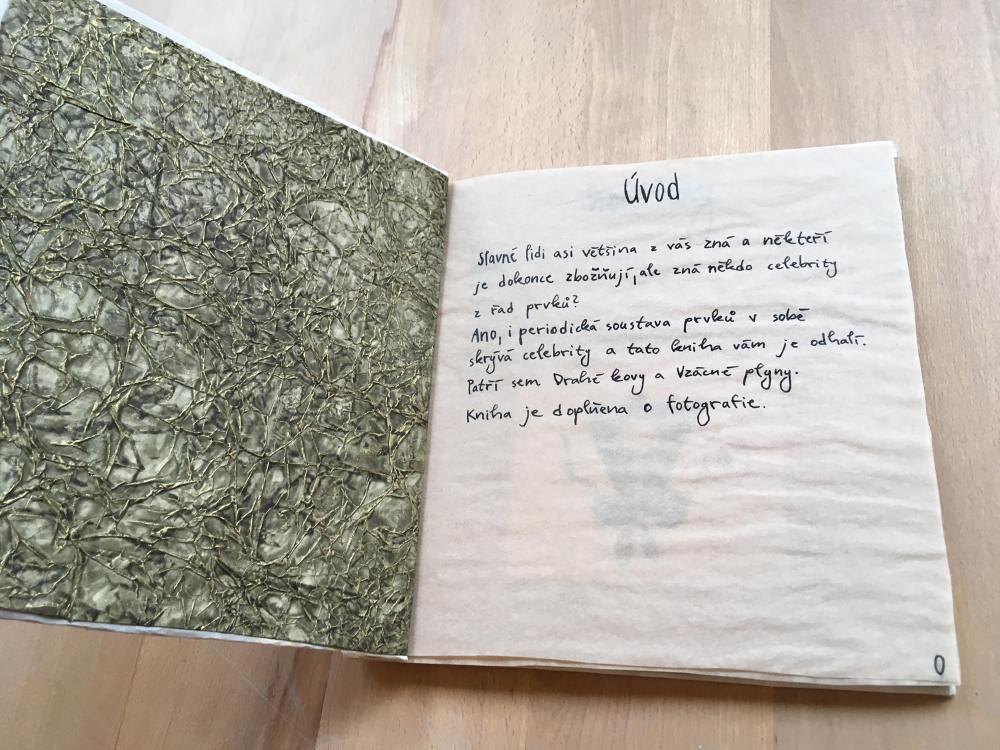 Úvod
Slavné lidi asi většina z vás zná a někteří
je dokonce zbožňují, ale zná někdo celebrity
z řad prvků?
Ano, i periodická soustava prvků v sobě
skrývá celebrity a tato kniha vám je odhalí.
Patří sem Drahé kovy a Vzácné plyny.
Kniha je doplněna o fotografie.
0